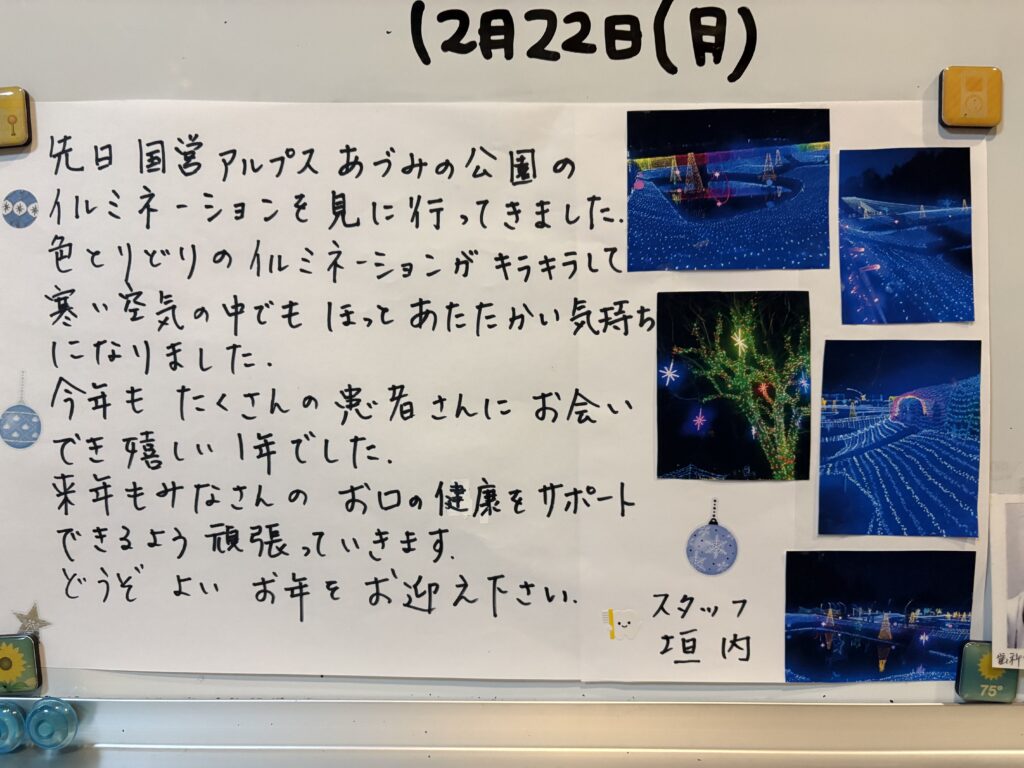 12月22日(月)
先日 国営アルプス あづみの公園の
イルミネーションを見に行ってきました.
色とりどりのイルミネーションがキラキラして
寒い空気の中でも ほっと あたたかい気持ち
になりました.
今年も たくさんの 患者さんに お会い
でき嬉しい1年でした.
来年もみなさんの お口の健康をサポート
できるよう 頑張っていきます.
どうぞ よい お年を お迎え下さい.
スタッフ
垣内
75°